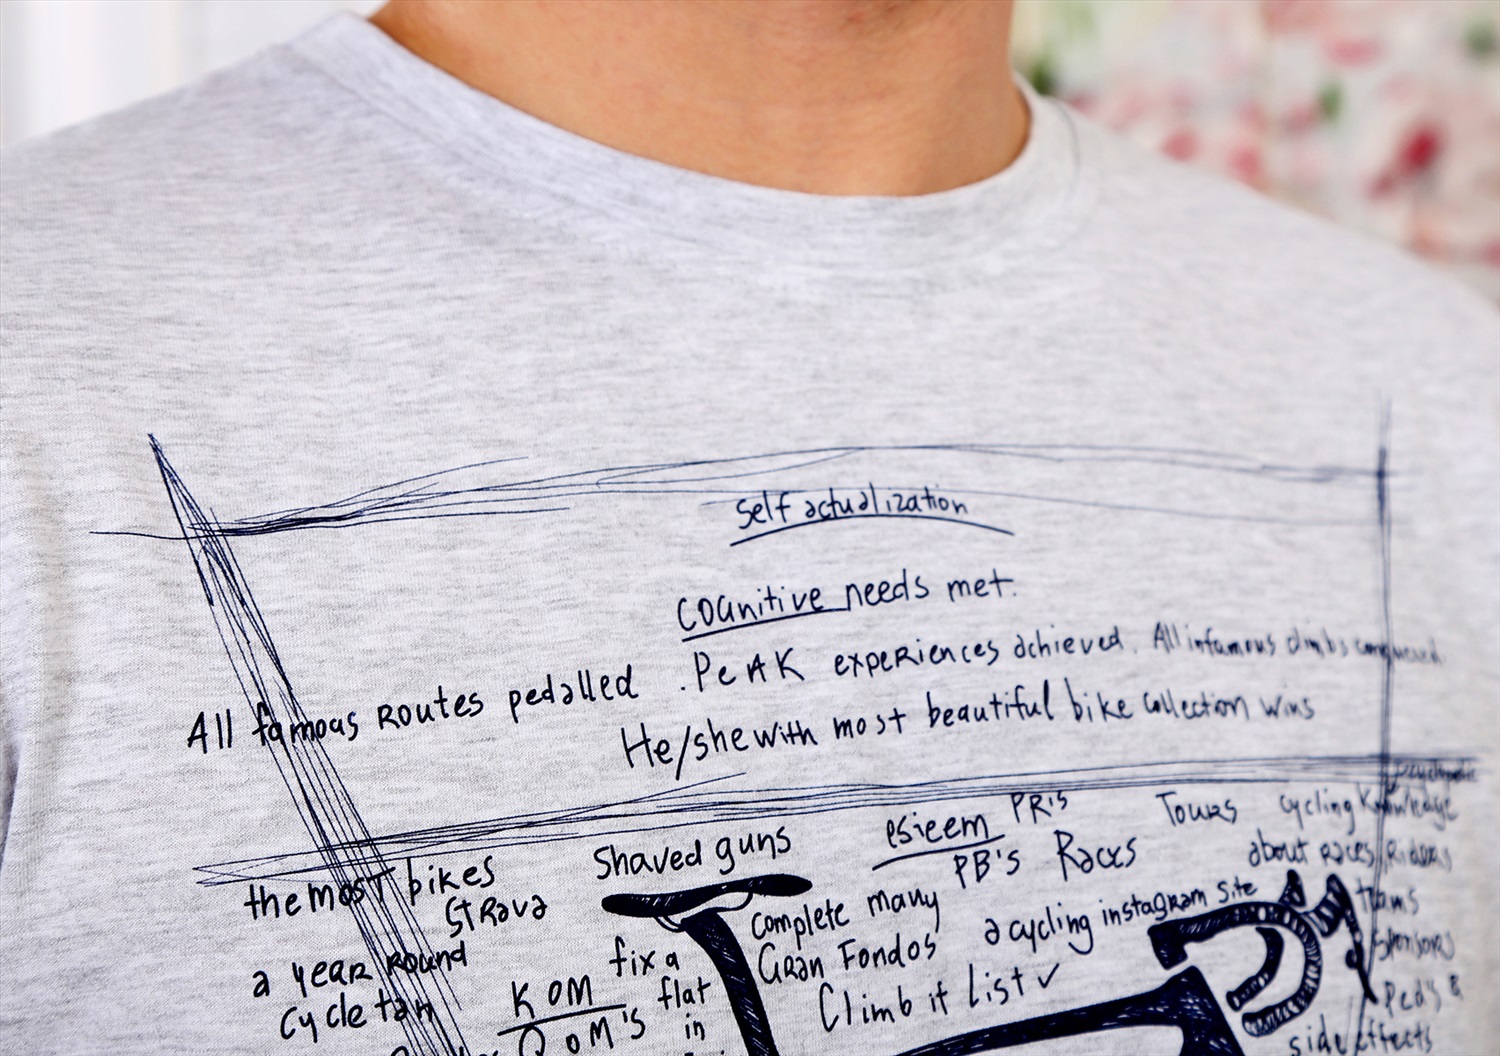 Self actualization
Cognitive needs met.
All famous Routes pedalled . PeAK expeRiences achieved. All infamous climbs conquered
He/she with most beautiful bike collection wins
the most bikes
Strava
a year Round
Cycle tan
Shaved guns
KOM
QOM's
fix a
flat
in
esteem PR's
PB's Races
Tours
complete many
GRan Fondos
a cycling instagram site
Climb it list ✓
cycling knowledge
about races, Riders
teams
sponsors
Ped's &
side effects